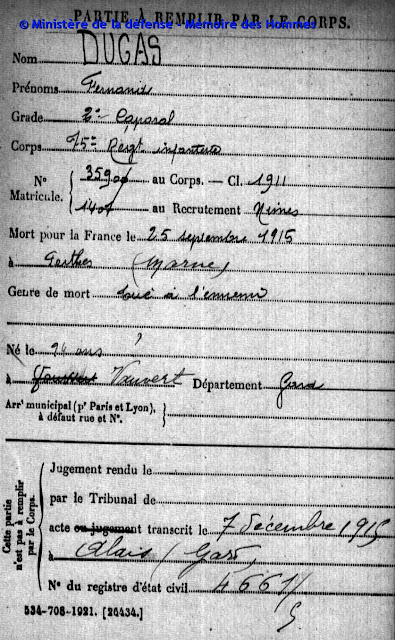 PARTIE À REMPLIR PAR LE CORPS.
© Ministère de la défense - Mémoire des Hommes
Nom DUGAS
Prénoms Fernand
Grade 2e Caporal
Corps 75e Régt infanterie
N° Matricule. { 3590 au Corps. — Cl. 1911
1407 au Recrutement Nimes
Mort pour la France le 25 septembre 1915
à Perthes (Marne)
Genre de mort tué à l'ennemi
Né le 24 ans ?
à Vauvert Département Gard
Arrt municipal (pr Paris et Lyon), à défaut rue et N°. }
Cette partie n'est pas à remplir par le Corps.
Jugement rendu le
par le Tribunal de
acte ou jugement transcrit le 7 décembre 1915
à Alais (Gard)
N° du registre d'état civil 4661/
5
534-708-1921. [26434.]